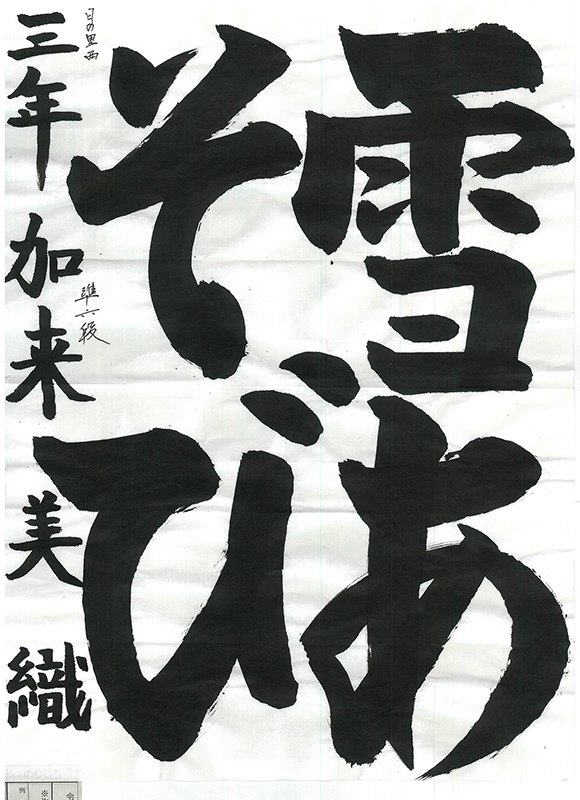 雪あ
そび
日の里西
三年 加来 美織
準六段
令
※
例